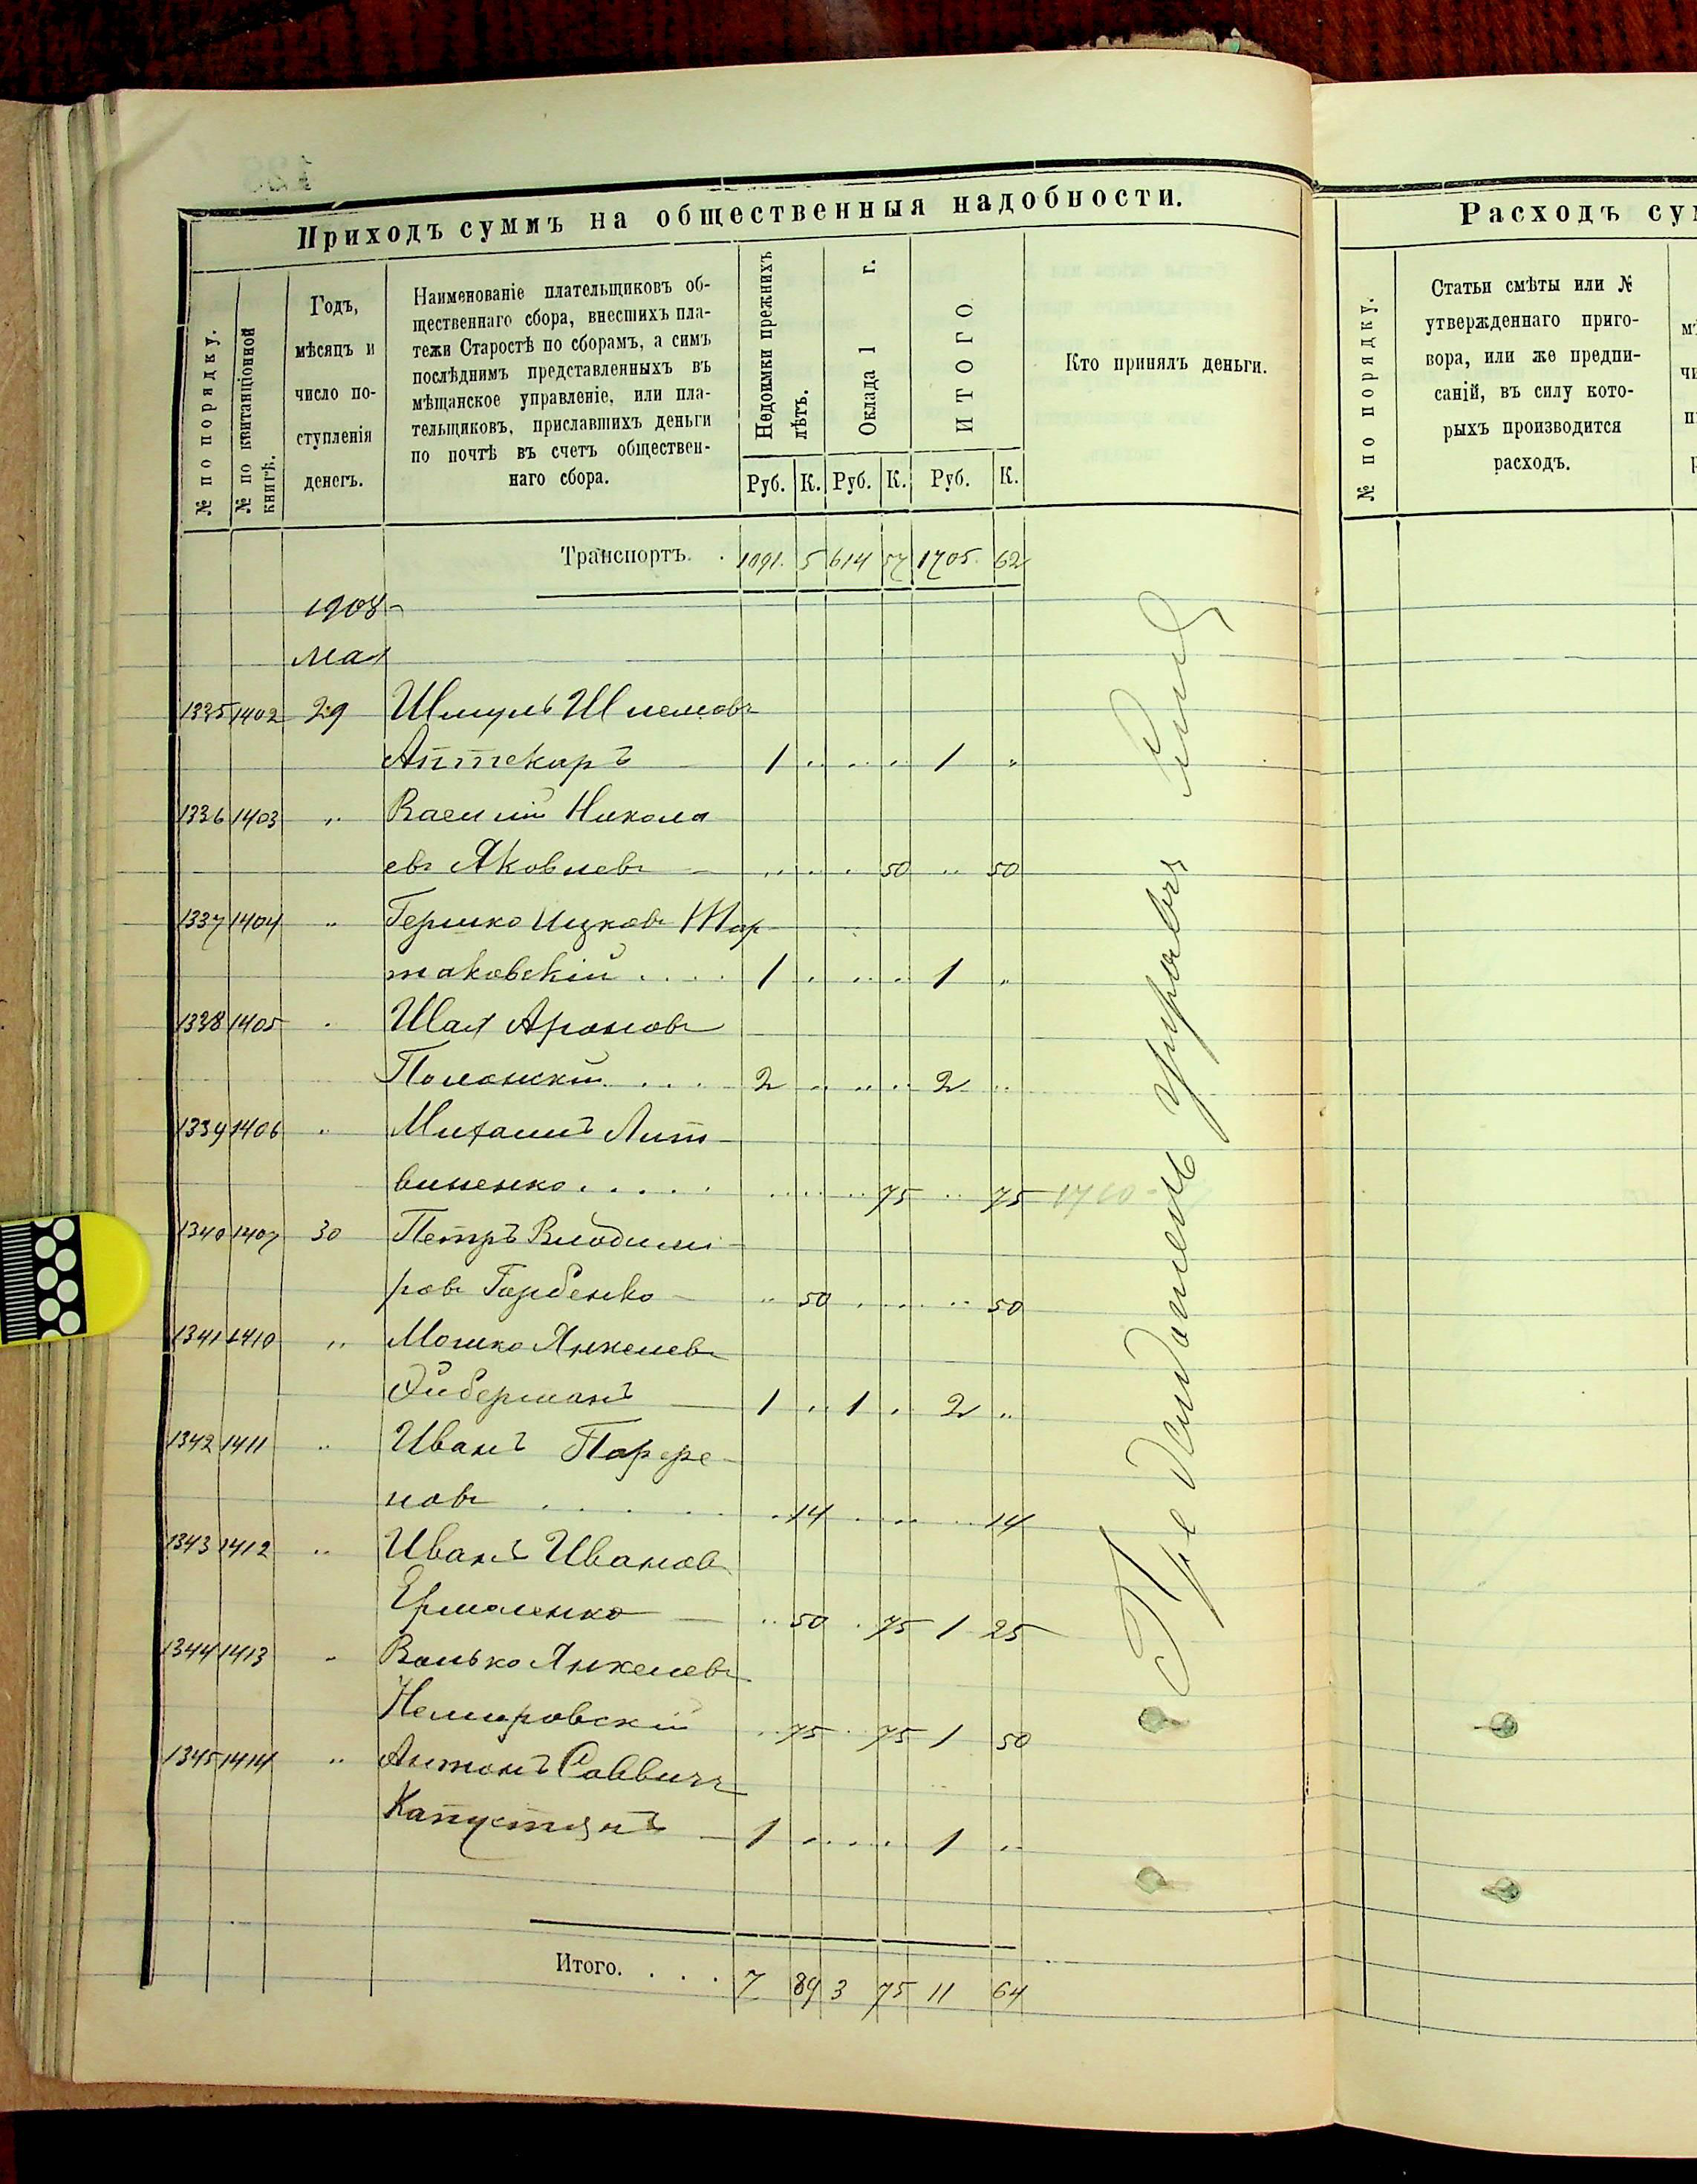 Приходъ суммъ на общественныя надобности.
№ по порядку.
№ по квитанціонной книгѣ.
Годъ,
мѣсяцъ и
число по-
ступленія
денегъ.
Наименованіе плательщиковъ об-
щественнаго сбора, внесшихъ пла-
тежи Старостѣ по сборамъ, а симъ
послѣднимъ представленныхъ въ
мѣщанское управленіе, или пла-
тельщиковъ, приславшихъ деньги
по почтѣ въ счетъ обществен-
наго сбора.
Недоимки прежнихъ
лѣтъ.
Оклада 1 г.
ИТОГО
Руб. К. Руб. К. Руб. К.
Кто принялъ деньги.
Транспортъ. . 1091. 5 614 57 1705. 62
1908
мая
1335 1402 29 Шмуль Шлемовъ
Аптекарь — 1 .. .. .. 1 "
1336 1403 " Василій Никола
евъ Яковлевъ — .. .. . 50 .. 50
1337 1404 " Гершко Ицковъ Мар
таковскій . . . . 1 . .. . 1 "
1338 1405 " Шая Ароновъ
Полонскій . . . . 2 .. .. . 2 ..
1339 1406 " Михаилъ Лит-
виненко . . . . . .. .. .. 75 .. 75
1340 1407 30 Петръ Владими-
ровъ Горбенко — .. 50 . .. .. 50
1341 1410 " Мошко Янкелевъ
Эйберманъ — 1 .. 1 . 2 ..
1342 1411 " Иванъ Парфе-
новъ . . . . . 14 . .. .. 14
1343 1412 " Иванъ Ивановъ
Ермоленко — .. 50 . 75 1 25
1344 1413 " Волько Янкелевъ
Немировскій .. 75 .. 75 1 50
1345 1414 " Антонъ Саввичъ
Капустянъ — 1 .. .. . 1 ..
Итого. . . . 7 89 3 75 11 64
Предсѣдатель управы
Расходъ су
№ по порядку.
Статьи смѣты или №
утвержденнаго приго-
вора, или же предпи-
саній, въ силу кото-
рыхъ производится
расходъ.